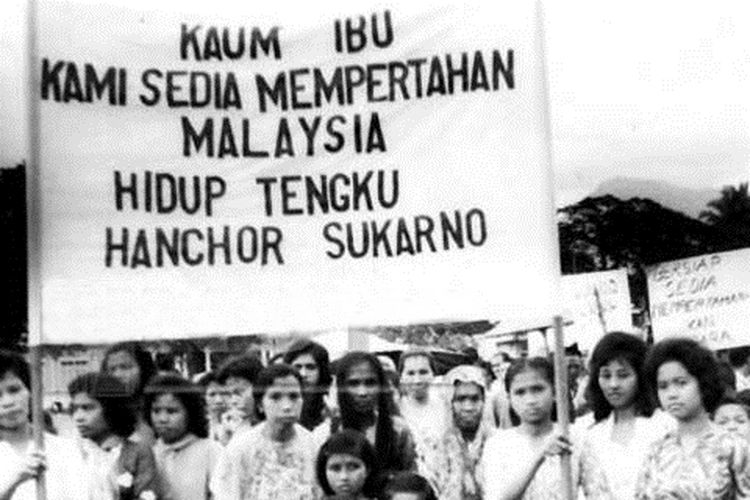 KAUM IBU
KAMI SEDIA MEMPERTAHAN
MALAYSIA
HIDUP TENGKU
HANCHOR SUKARNO
BERSIAP
SEDIA
MEMPERTAHAN
KAN